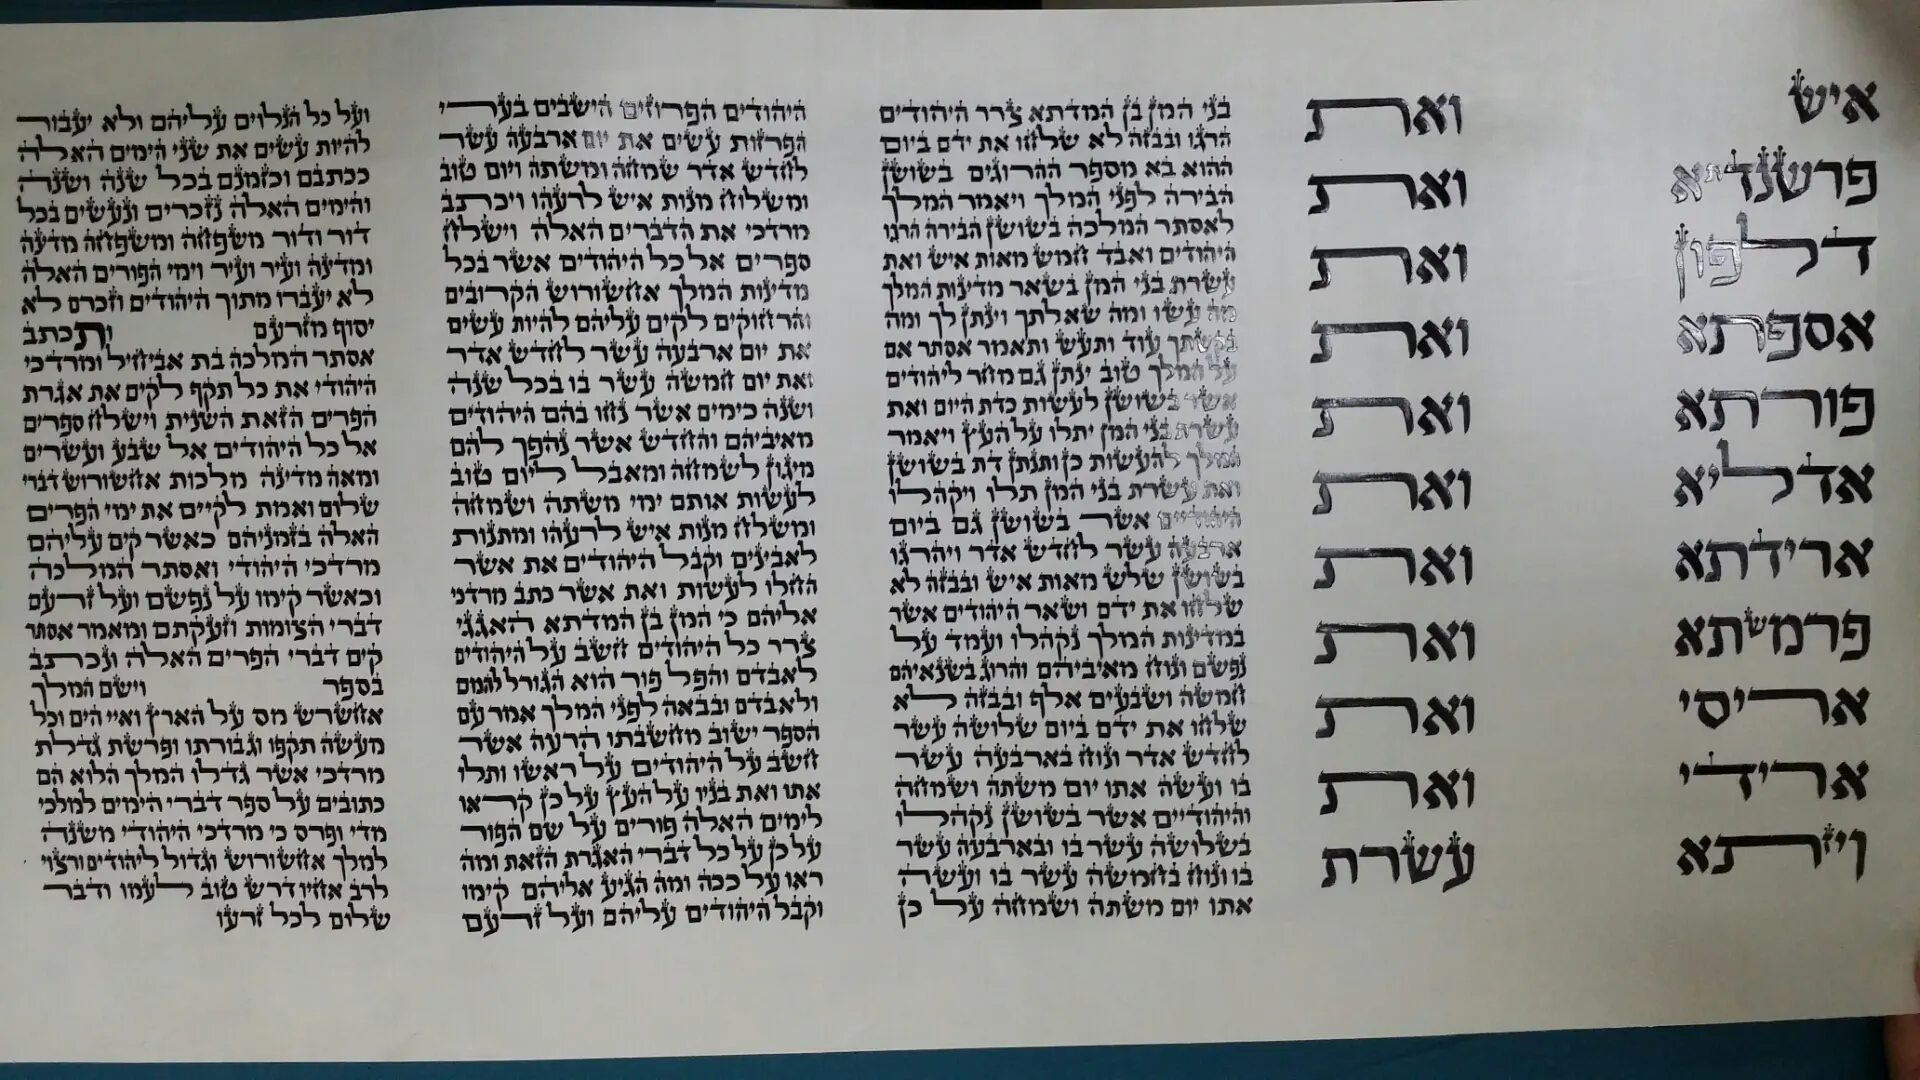 איש ואת
פרשנדתא ואת
דלפון ואת
אספתא ואת
פורתא ואת
אדליא ואת
ארידתא ואת
פרמשתא ואת
אריסי ואת
ארידי ואת
ויזתא עשרת
בני המן בן המדתא צרר היהודים
הרגו ובבזה לא שלחו את ידם ביום
ההוא בא מספר ההרוגים בשושן
הבירה לפני המלך ויאמר המלך
לאסתר המלכה בשושן הבירה הרגו
היהודים ואבד חמש מאות איש ואת
עשרת בני המן בשאר מדינות המלך
מה עשו ומה שאלתך וינתן לך ומה
בקשתך עוד ותעש ותאמר אסתר אם
על המלך טוב ינתן גם מחר ליהודים
אשר בשושן לעשות כדת היום ואת
עשרת בני המן יתלו על העץ ויאמר
המלך להעשות כן ותנתן דת בשושן
ואת עשרת בני המן תלו ויקהלו
היהודיים אשר בשושן גם ביום
ארבעה עשר לחדש אדר ויהרגו
בשושן שלש מאות איש ובבזה לא
שלחו את ידם ושאר היהודים אשר
במדינות המלך נקהלו ועמד על
נפשם ונוח מאיביהם והרוג בשנאיהם
חמשה ושבעים אלף ובבזה לא
שלחו את ידם ביום שלושה עשר
לחדש אדר ונוח בארבעה עשר
בו ועשה אתו יום משתה ושמחה
והיהודיים אשר בשושן נקהלו
בשלושה עשר בו ובארבעה עשר
בו ונוח בחמשה עשר בו ועשה
אתו יום משתה ושמחה על כן
היהודים הפרוזים הישבים בערי
הפרזות עשים את יום ארבעה עשר
לחדש אדר שמחה ומשתה ויום טוב
ומשלוח מנות איש לרעהו ויכתב
מרדכי את הדברים האלה וישלח
ספרים אל כל היהודים אשר בכל
מדינות המלך אחשורוש הקרובים
והרחוקים לקים עליהם להיות עשים
את יום ארבעה עשר לחדש אדר
ואת יום חמשה עשר בו בכל שנה
ושנה כימים אשר נחו בהם היהודים
מאיביהם והחדש אשר נהפך להם
מיגון לשמחה ומאבל ליום טוב
לעשות אותם ימי משתה ושמחה
ומשלח מנות איש לרעהו ומתנות
לאביונים וקבל היהודים את אשר
החלו לעשות ואת אשר כתב מרדכי
אליהם כי המן בן המדתא האגגי
צרר כל היהודים חשב על היהודים
לאבדם והפל פור הוא הגורל להמם
ולאבדם ובבאה לפני המלך אמר עם
הספר ישוב מחשבתו הרעה אשר
חשב על היהודים על ראשו ותלו
אתו ואת בניו על העץ על כן קראו
לימים האלה פורים על שם הפור
על כן על כל דברי האגרת הזאת ומה
ראו על ככה ומה הגיע אליהם קימו
וקבל היהודים עליהם ועל זרעם
ועל כל הנלוים עליהם ולא יעבור
להיות עשים את שני הימים האלה
ככתבם וכזמנם בכל שנה ושנה
והימים האלה נזכרים ונעשים בכל
דור ודור משפחה ומשפחה מדינה
ומדינה ועיר ועיר וימי הפורים האלה
לא יעברו מתוך היהודים וזכרם לא
יסוף מזרעם ותכתב
אסתר המלכה בת אביחיל ומרדכי
היהודי את כל תקף לקים את אגרת
הפרים הזאת השנית וישלח ספרים
אל כל היהודים אל שבע ועשרים
ומאה מדינה מלכות אחשורוש דברי
שלום ואמת לקיים את ימי הפרים
האלה בזמניהם כאשר קים עליהם
מרדכי היהודי ואסתר המלכה
וכאשר קימו על נפשם ועל זרעם
דברי הצומות וזעקתם ומאמר אסתר
קים דברי הפרים האלה ונכתב
בספר וישם המלך
אחשרש מס על הארץ ואיי הים וכל
מעשה תקפו וגבורתו ופרשת גדלת
מרדכי אשר גדלו המלך הלוא הם
כתובים על ספר דברי הימים למלכי
מדי ופרס כי מרדכי היהודי משנה
למלך אחשורוש וגדול ליהודים ורצוי
לרב אחיו דרש טוב לעמו ודבר
שלום לכל זרעו